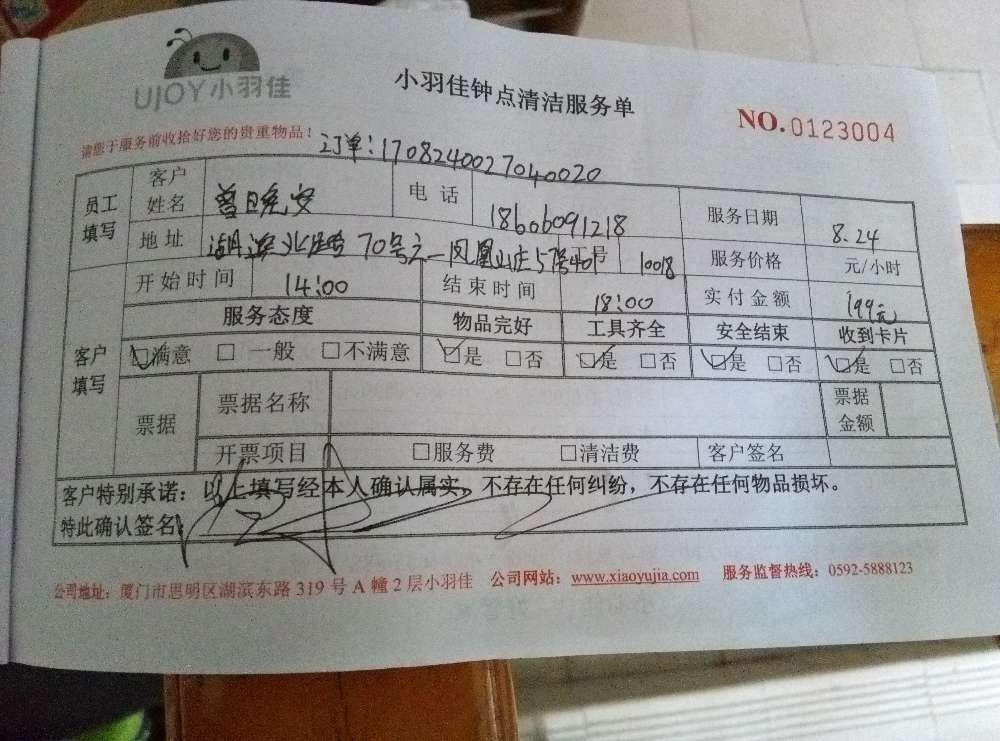 UJOY小羽佳
小羽佳钟点清洁服务单
NO.0123004
请您于服务前收拾好您的贵重物品!
订单:1708240027040020
员工填写 客户姓名 曾晓安 电话 18666091218 服务日期 8.24
地址 湖滨北路70号之一凤凰山庄 工号 10018 服务价格 元/小时
开始时间 14:00 结束时间 18:00 实付金额 199元
客户填写 服务态度 物品完好 工具齐全 安全结束 收到卡片
☑满意 □一般 □不满意 ☑是 □否 ☑是 □否 ☑是 □否 ☑是 □否
票据 票据名称 票据金额
开票项目 □服务费 □清洁费 客户签名
客户特别承诺:以上填写经本人确认属实,不存在任何纠纷,不存在任何物品损坏。
特此确认签名
公司地址:厦门市思明区湖滨东路319号A幢2层小羽佳 公司网站:www.xiaoyujia.com 服务监督热线:0592-5888123